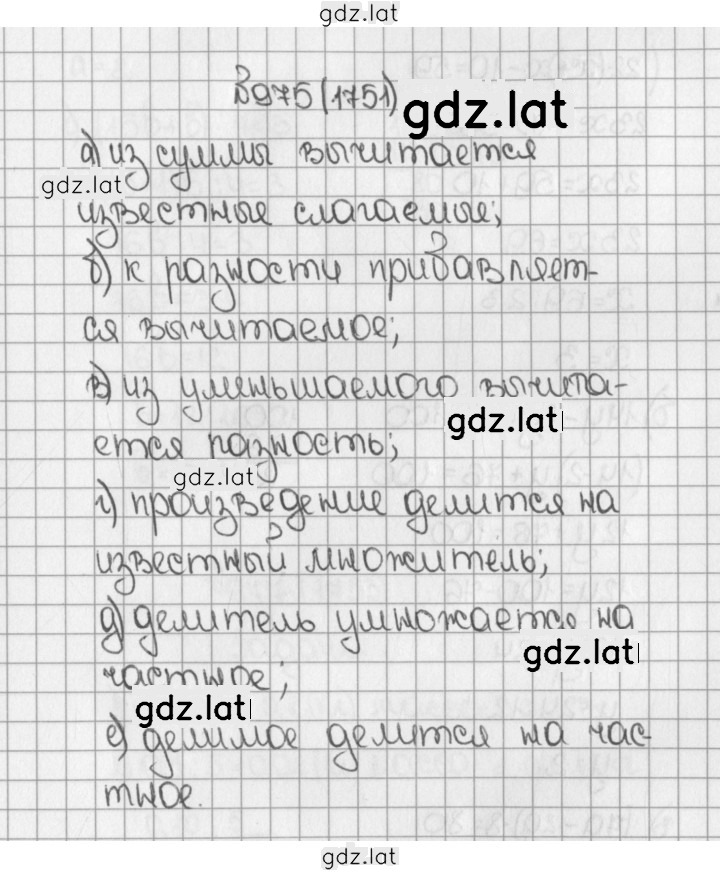 gdz.lat
В 975 (1751)
gdz.lat
а) из суммы вычитается
gdz.lat
известные слагаемые;
б) к разности прибавляет-
ся вычитаемое;
в) из уменьшаемого вычита-
gdz.lat
ется разность;
gdz.lat
г) произведение делится на
известный множитель;
д) делитель умножается на
gdz.lat
частное;
gdz.lat
е) делимое делится на час-
тное.
gdz.lat